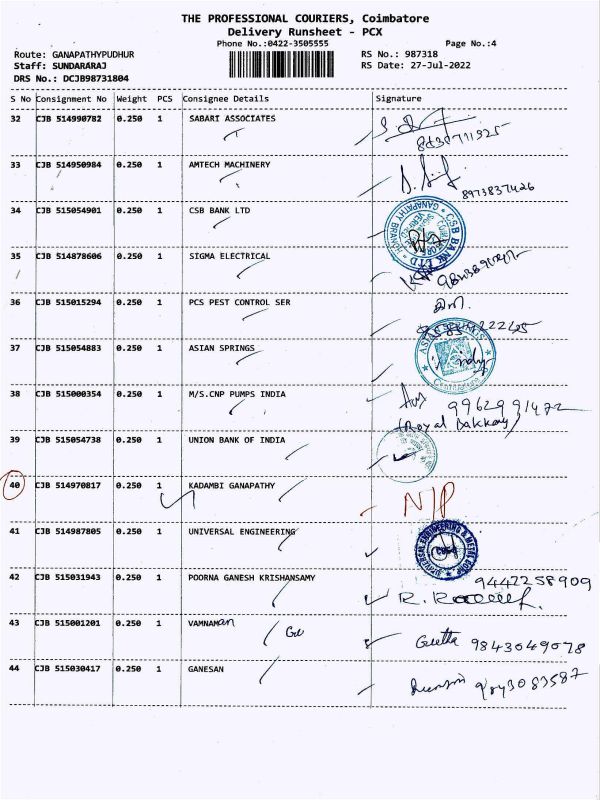 THE PROFESSIONAL COURIERS, Coimbatore
Delivery Runsheet - PCX
Phone No.:0422-3505555 Page No.:4
Route: GANAPATHYPUDHUR RS No.: 987318
Staff: SUNDARARAJ RS Date: 27-Jul-2022
DRS No.: DCJB98731804
S No Consignment No Weight PCS Consignee Details Signature
32 CJB 514990782 0.250 1 SABARI ASSOCIATES
33 CJB 514950984 0.250 1 AMTECH MACHINERY
8973837426
34 CJB 515054901 0.250 1 CSB BANK LTD
CSB BANK LTD
GANAPATHY BRANCH
35 CJB 514878606 0.250 1 SIGMA ELECTRICAL
36 CJB 515015294 0.250 1 PCS PEST CONTROL SER
37 CJB 515054883 0.250 1 ASIAN SPRINGS
Coimbatore
38 CJB 515000354 0.250 1 M/S.CNP PUMPS INDIA
9962991472
(Royal Bakkery)
39 CJB 515054738 0.250 1 UNION BANK OF INDIA
40 CJB 514970817 0.250 1 KADAMBI GANAPATHY N/P
41 CJB 514987805 0.250 1 UNIVERSAL ENGINEERING
UNIVERSAL ENGINEERING & METAL CORP
42 CJB 515031943 0.250 1 POORNA GANESH KRISHANSAMY 9442258909
43 CJB 515001201 0.250 1 VAMNAMan Geetha 9843049078
44 CJB 515030417 0.250 1 GANESAN 9843083587